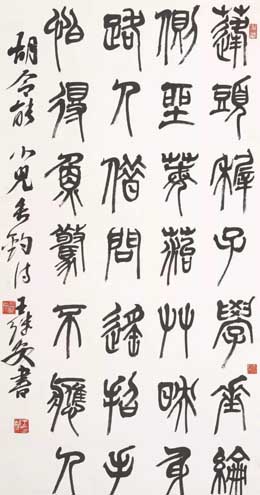 蓬頭稺子學垂綸
側坐莓苔艸映身
路人借問遙招手
怕得魚驚不應人
胡令能 小兒垂釣詩 王 書